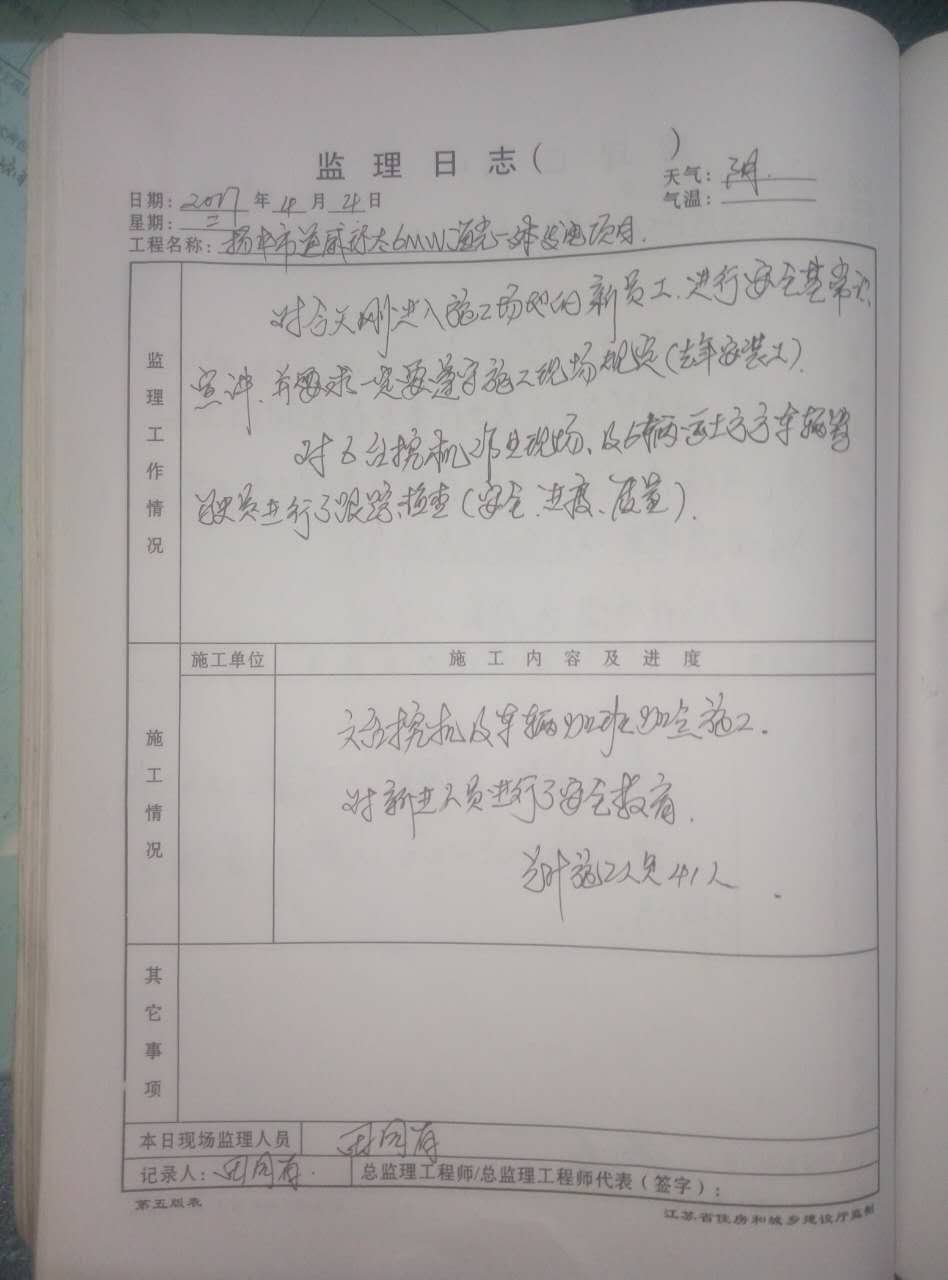 监 理 日 志 (          )
日期: 2017 年 4 月 4 日
天气: 阴.
星期: 二
气温:
工程名称: 扬中市 6MW渔光一体发电项目.
监理工作情况
对今天刚进入施工场地的新员工.进行安全基常识
宣讲.并要求一定要遵守施工现场规定(去年安装工).
对6台挖机作业现场、及6辆运土方车辆驾
驶员进行了跟踪检查(安全.进度、质量).
施工情况
施工单位
施 工 内 容 及 进 度
六台挖机及车辆加班加点施工.
对新进人员进行了安全教育.
总计施工人员41人.
其它事项
本日现场监理人员
记录人:
总监理工程师/总监理工程师代表(签字):
第五版表
江苏省住房和城乡建设厅监制